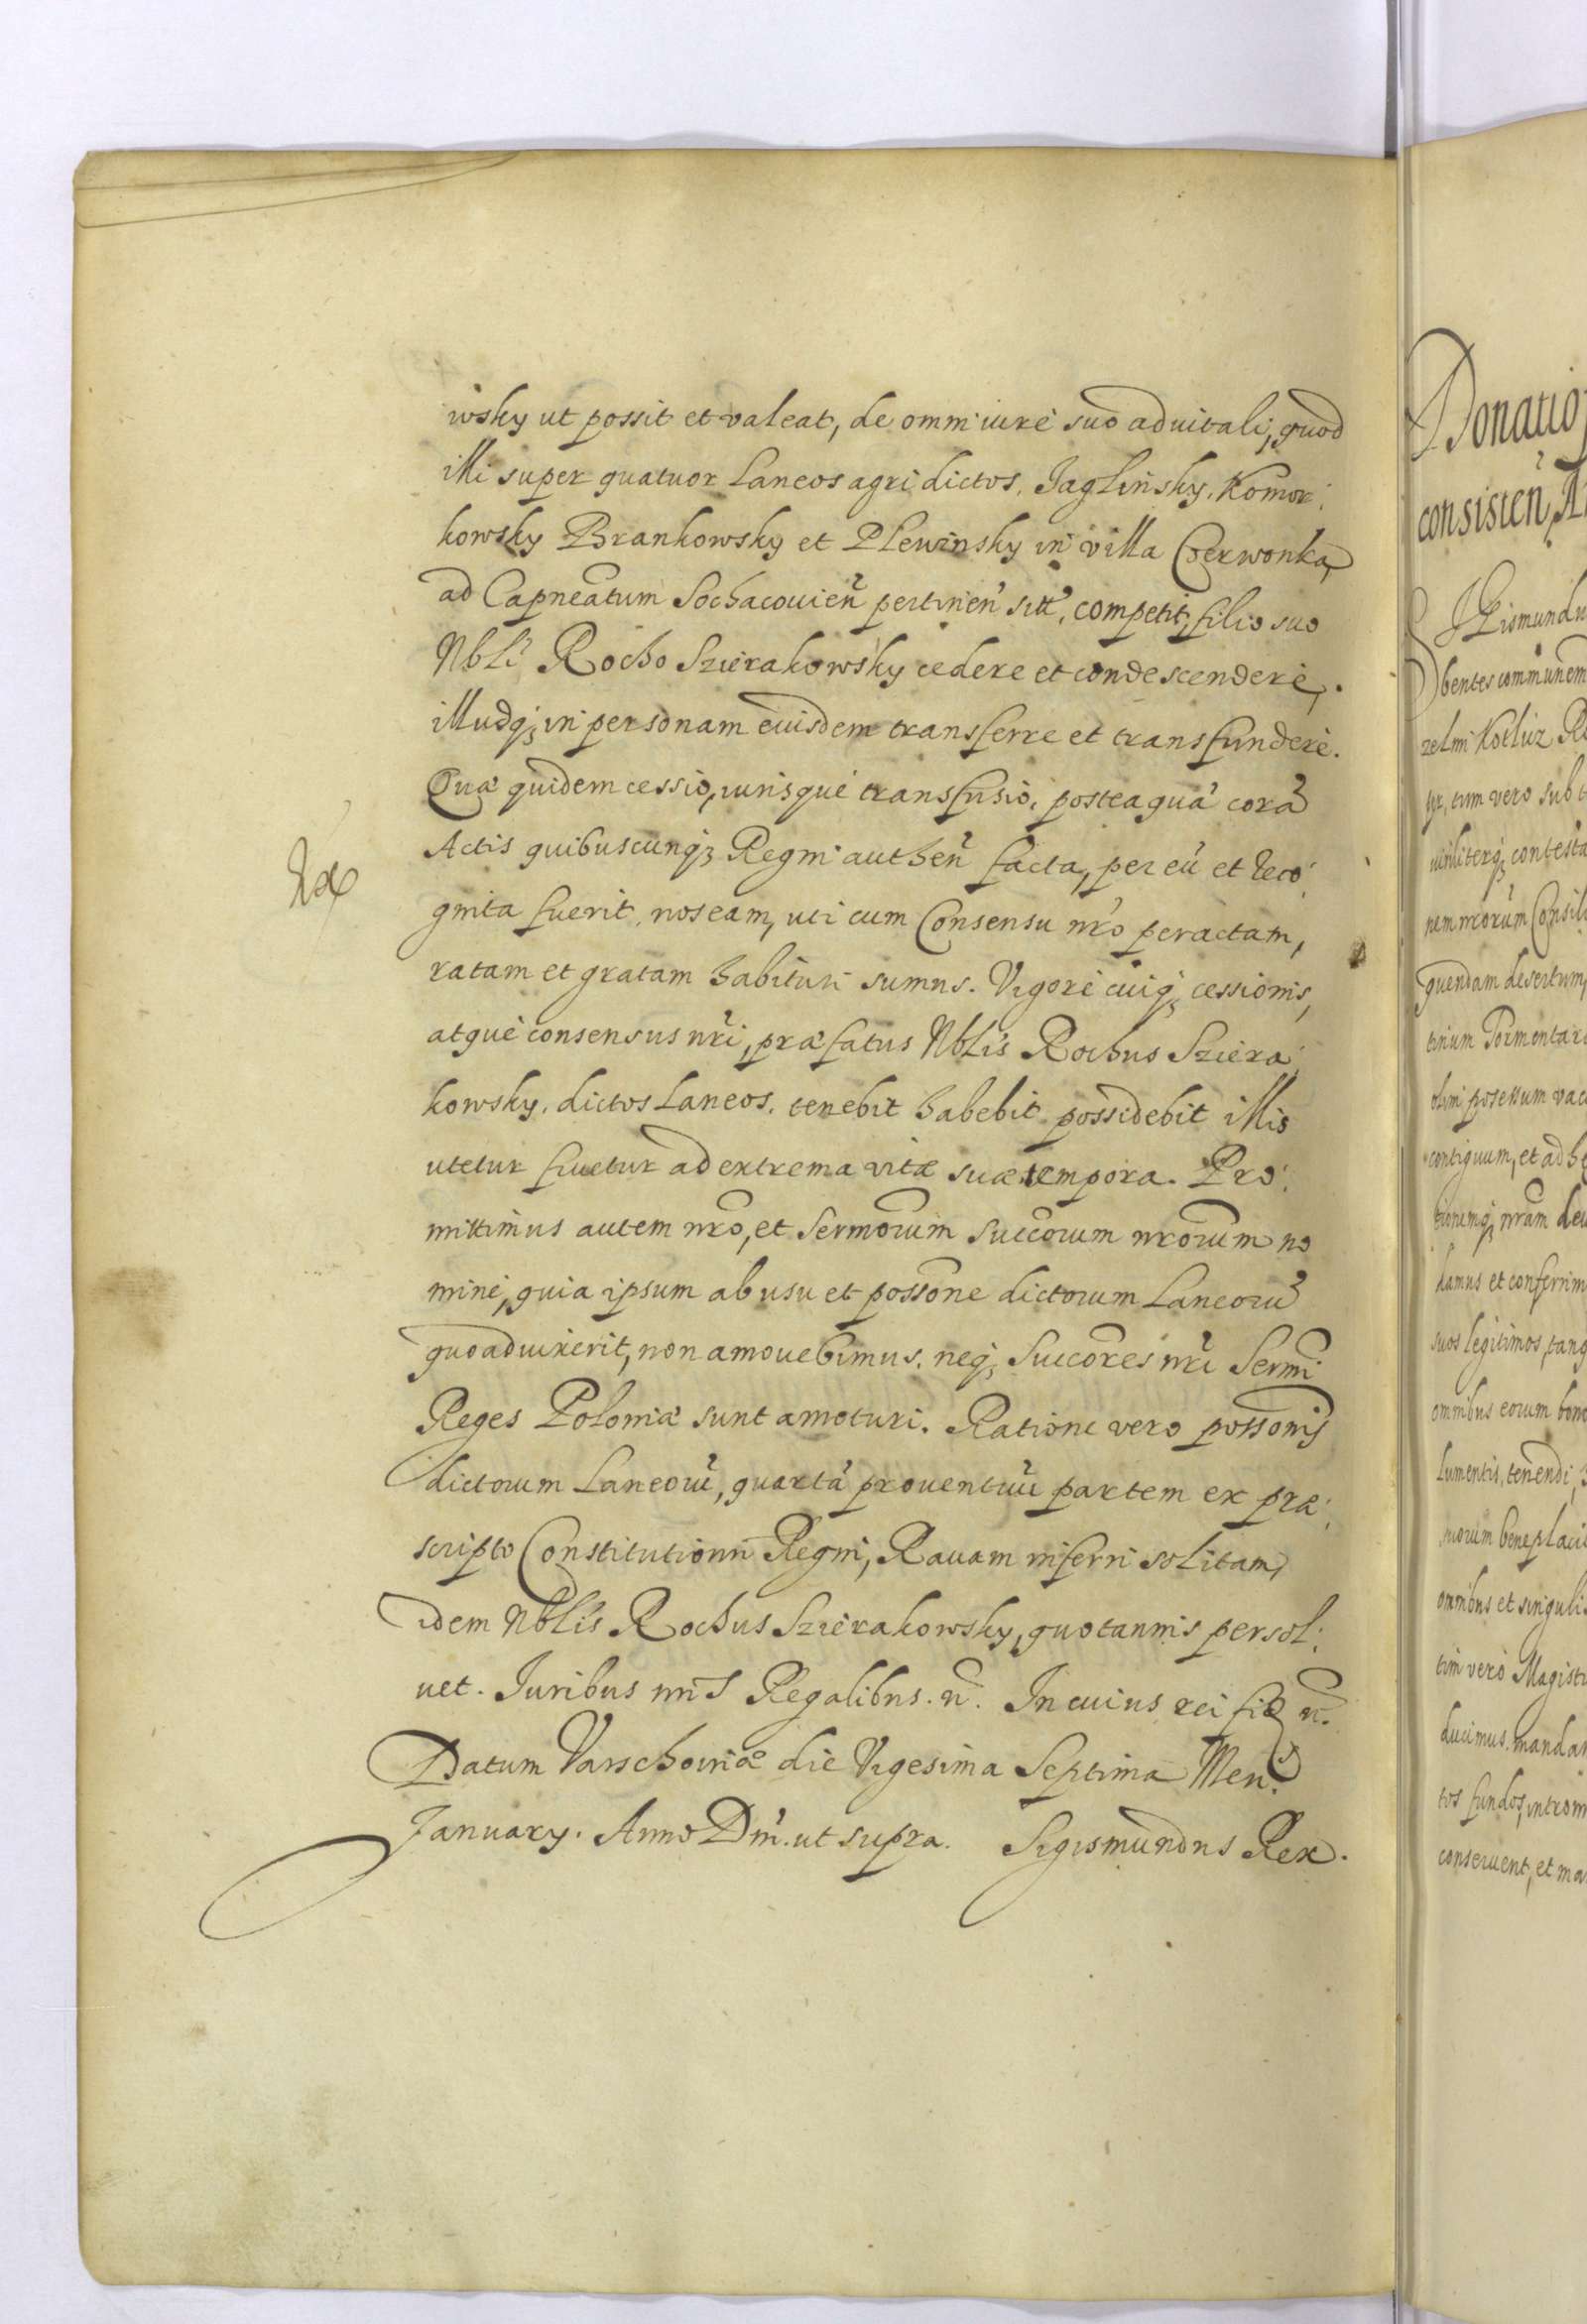 wsky ut possit et valeat, de omni iure suo aduitali, quod
illi super quatuor Laneos agri dictos, Jaglinsky, Komor:
kowsky Brankowsky et Plewinsky in villa Czerwonka,
ad Capneatum Sochacouien̄ pertinen̄ sitt, competit, filio suo
Nbli Rocho Szierakowsky cedere et condescendere,
illudq; in personam eiusdem transferre et transfundere.
Quæ quidem cessio, iurisque transfusio, posteaquā corā
Actis quibuscunq; Regni authen̄ facta, per eū et reco:
gnita fuerit, nos eam, uti cum Consensu nr̄o peractam,
ratam et gratam habituri sumus. Vigore cuiq; cessionis,
atque consensus nr̄i, præfatus Nblis Rochus Sziera:
kowsky, dictos Laneos, tenebit habebit possidebit illis
utetur fruetur ad extrema vitæ suæ tempora. Pro:
mittimus autem nr̄o, et Sermorum Succorum nr̄orum no
mine, quia ipsum ab usu et possone dictorum Laneorū
quoad uixerit, non amouebimus, neq; Succores nr̄i Sermi
Reges Poloniæ sunt amoturi. Ratione vero possonis
dictorum Laneorū, quartā prouentuū partem ex præ:
scripto Constitutionū Regni, Rauam inferri solitam,
idem Nblis Rochus Szierakowsky, quotannis persol:
uet. Juribus nr̄is Regalibus. n̄. In cuius rei fid n̄.
Datum Varschouiæ die Vigesima Septima Men.
January. Anno Dn̄i. ut supra. Sigismundus Rex.
Donatio
consisten
Gismundu
bentes communem
zelmi Koeluz R
tyr, tum vero sub
uiriliterq; contesta
nem nr̄orum Consili
quendam desertum,
tinum Tormentari
olim possessum vac
contiguum, et ad h
tionemq; nr̄am deu
damus et conferrim
suos legitimos, tanq
omnibus eorum bon
lumentis, tenendi,
morum beneplaci
omnibus et singuli
tim vero Magist
ducimus. mandan
tos fundos, introm
conseruent, et ma